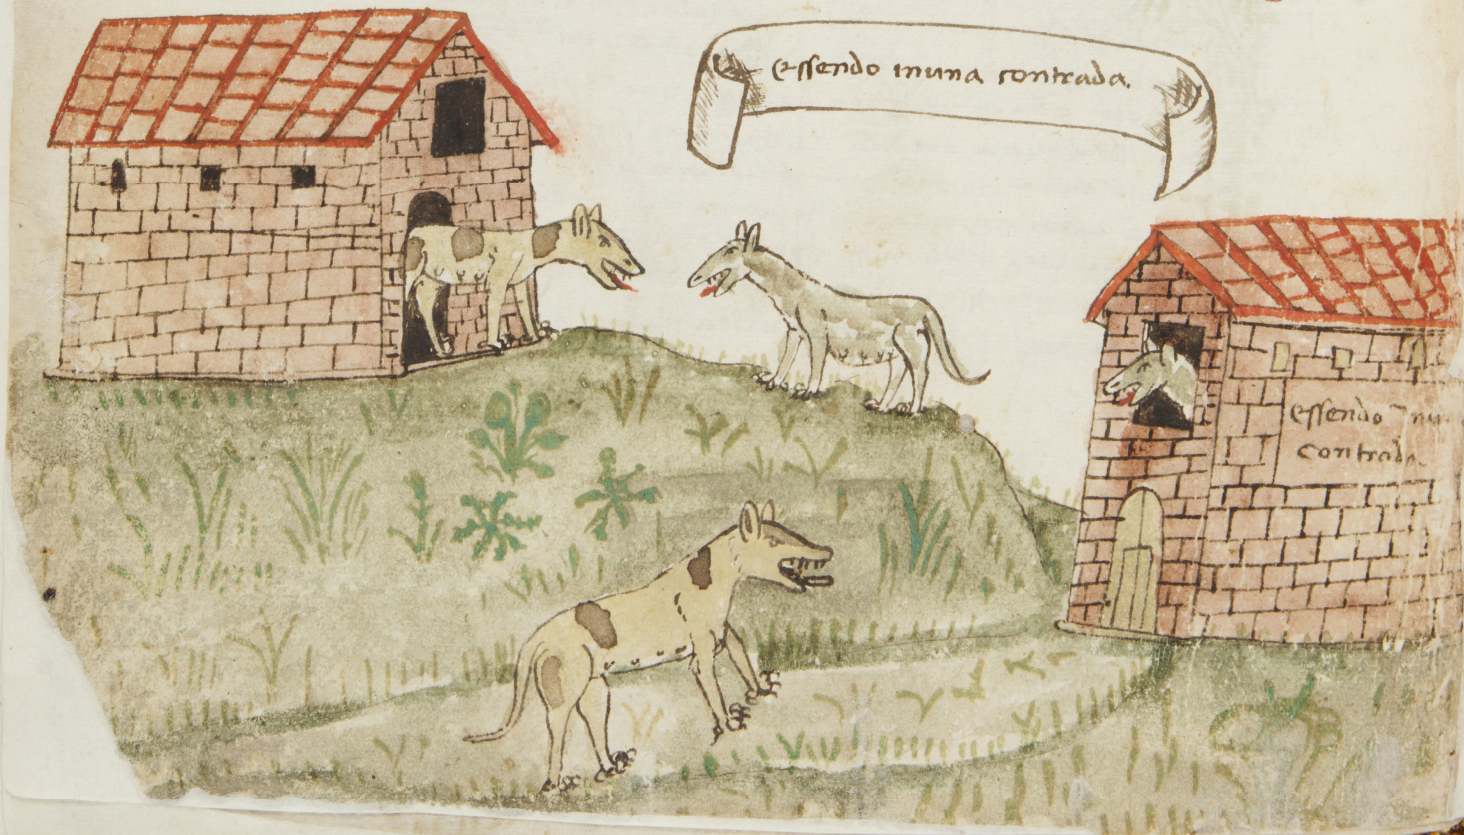 essendo inuna contrada.
essendo inu
contrada